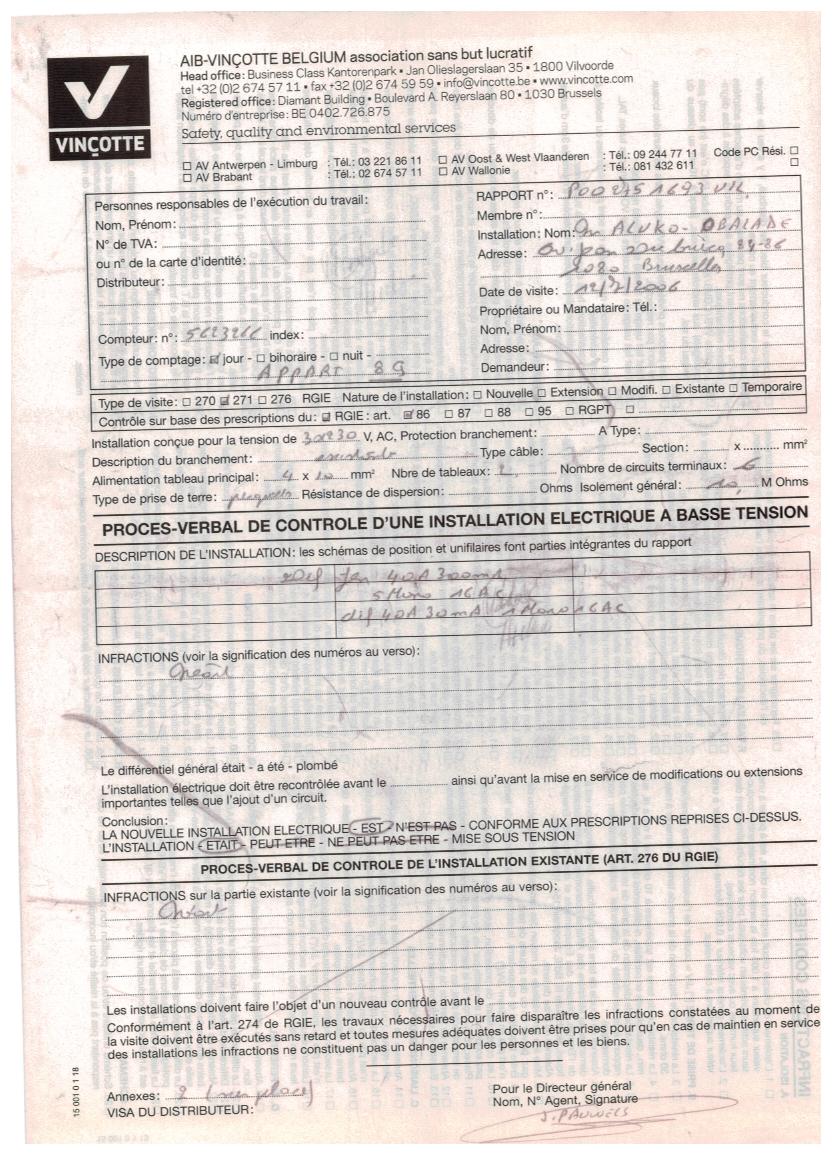 VINÇOTTE
AIB-VINÇOTTE BELGIUM association sans but lucratif
Head office: Business Class Kantorenpark • Jan Olieslagerslaan 35 • 1800 Vilvoorde
tel +32 (0)2 674 57 11 • fax +32 (0)2 674 59 59 • info@vincotte.be • www.vincotte.com
Registered office: Diamant Building • Boulevard A. Reyerslaan 80 • 1030 Brussels
Numéro d'entreprise: BE 0402.726.875
Safety, quality and environmental services
☐ AV Antwerpen - Limburg : Tél.: 03 221 86 11 ☐ AV Oost & West Vlaanderen : Tél.: 09 244 77 11 Code PC Rési. ☐
☐ AV Brabant : Tél.: 02 674 57 11 ☐ AV Wallonie : Tél.: 081 432 611 ☐
Personnes responsables de l'exécution du travail:
Nom, Prénom:
N° de TVA:
ou n° de la carte d'identité:
Distributeur:
Compteur: n°: 5623266 index:
Type de comptage: ☑ jour - ☐ bihoraire - ☐ nuit -
APPART 8G
RAPPORT n°: P002751693 VIL
Membre n°:
Installation: Nom: Mr ALUKO-OBALADE
Adresse: 24-26
1020 Bruxelles
Date de visite: 12/7/2006
Propriétaire ou Mandataire: Tél.:
Nom, Prénom:
Adresse:
Demandeur:
Type de visite: ☐ 270 ☑ 271 ☐ 276 RGIE Nature de l'installation: ☐ Nouvelle ☐ Extension ☐ Modifi. ☐ Existante ☐ Temporaire
Contrôle sur base des prescriptions du: ☑ RGIE: art. ☑ 86 ☐ 87 ☐ 88 ☐ 95 ☐ RGPT ☐
Installation conçue pour la tension de 3x230 V, AC, Protection branchement: A Type:
Description du branchement: Type câble: Section: x mm²
Alimentation tableau principal: 4 x 10 mm² Nbre de tableaux: 1 Nombre de circuits terminaux: 6
Type de prise de terre: Résistance de dispersion: Ohms Isolement général: 10 M Ohms
PROCES-VERBAL DE CONTROLE D'UNE INSTALLATION ELECTRIQUE A BASSE TENSION
DESCRIPTION DE L'INSTALLATION: les schémas de position et unifilaires font parties intégrantes du rapport
40A 300mA
5 Mono 16A C
dif 40A 30mA 1 Mono 16AC
INFRACTIONS (voir la signification des numéros au verso):
Néant
Le différentiel général était - a été - plombé
L'installation électrique doit être recontrôlée avant le ainsi qu'avant la mise en service de modifications ou extensions
importantes telles que l'ajout d'un circuit.
Conclusion:
LA NOUVELLE INSTALLATION ELECTRIQUE - EST - N'EST PAS - CONFORME AUX PRESCRIPTIONS REPRISES CI-DESSUS.
L'INSTALLATION - ETAIT - PEUT ETRE - NE PEUT PAS ETRE - MISE SOUS TENSION
PROCES-VERBAL DE CONTROLE DE L'INSTALLATION EXISTANTE (ART. 276 DU RGIE)
INFRACTIONS sur la partie existante (voir la signification des numéros au verso):
Les installations doivent faire l'objet d'un nouveau contrôle avant le
Conformément à l'art. 274 de RGIE, les travaux nécessaires pour faire disparaître les infractions constatées au moment de
la visite doivent être exécutés sans retard et toutes mesures adéquates doivent être prises pour qu'en cas de maintien en service
des installations les infractions ne constituent pas un danger pour les personnes et les biens.
15 001 0 1 18
Annexes: 2 (sur place)
VISA DU DISTRIBUTEUR:
Pour le Directeur général
Nom, N° Agent, Signature
J. PAUWELS